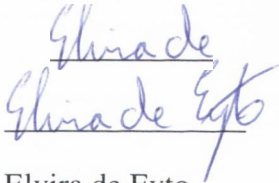 Elvira de
Elvira de Eyto
Elvira de Eyto